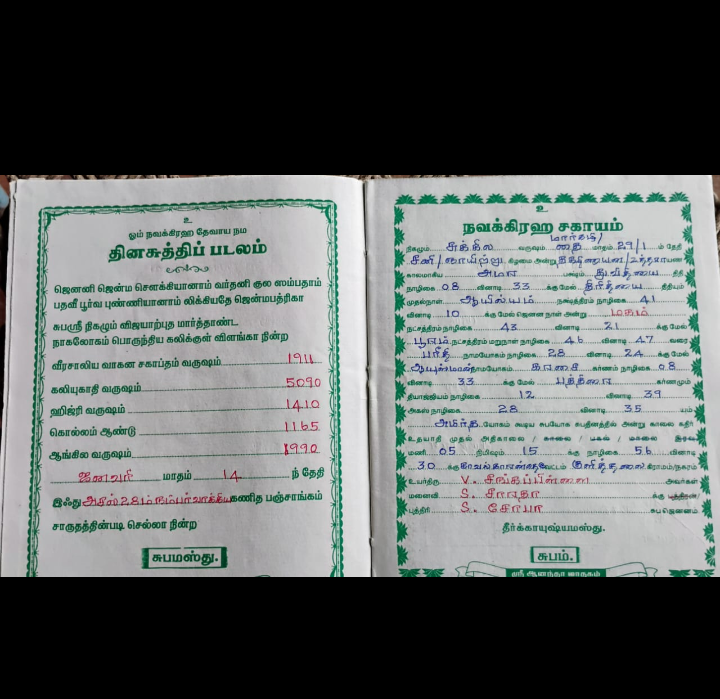 உ
ஓம் நவக்கிரஹ தேவாய நம
தினசுத்திப் படலம்
ஜெனனி ஜென்ம சௌக்கியானாம் வர்தனி குல ஸம்பதாம்
பதவீ பூர்வ புண்ணியானாம் லிக்கியதே ஜென்மபத்ரிகா
சுபஸ்ரீ நிகழும் விஜயாற்புத மார்த்தாண்ட
நாகலோகம் பொருந்திய கலிக்குள் விளங்கா நின்ற
வீரசாலிய வாகன சகாப்தம் வருஷம் 1911
கலியுகாதி வருஷம் 5090
ஹிஜ்ரி வருஷம் 1410
கொல்லம் ஆண்டு 1165
ஆங்கில வருஷம் 1990
ஜனவரி மாதம் 14 ந் தேதி
இஃது அசல் 28ம் நம்பர் வாக்கிய கணித பஞ்சாங்கம்
சாருதத்தின்படி செல்லா நின்ற
சுபமஸ்து.
உ
நவக்கிரஹ சகாயம்
மார்கழி/
நிகழும் சுக்கில வருஷம் தை மாதம் 29/1 ம் தேதி
சனி/ஞாயிற்று கிழமை அன்று தக்ஷிணாயன/உத்தராயண
காலமாகிய அமர பக்ஷம் துவிதியை திதி
நாழிகை 08 வினாடி 33 க்கு மேல் திரிதியை திதியும்
முதல்நாள் ஆயில்யம் நக்ஷத்திரம் நாழிகை 41
வினாடி 10 க்கு மேல் ஜென்ன நாள் அன்று மகம்
நட்சத்திரம் நாழிகை 43 வினாடி 21 க்கு மேல்
பூரம் நட்சத்திரம் மறுநாள் நாழிகை 46 வினாடி 47 வரை
பரீதி நாமயோகம் நாழிகை 28 வினாடி 24 க்கு மேல்
ஆயுஷ்மான் நாமயோகம் கரசை கர்ணம் நாழிகை 08
வினாடி 33 க்கு மேல் பத்திரை கர்ணமும்
தியாஜ்ஜியம் நாழிகை 12 வினாடி 39
அகஸ் நாழிகை 28 வினாடி 35 யம்
அமிர்த யோகம் கூடிய சுபயோக சுபதினத்தில் அன்று காலை கதிர்
உதயாதி முதல் அதிகாலை / காலை / பகல் / மாலை இரவு
மணி 05 நிமிஷம் 15 க்கு நாழிகை 56 வினாடி
30 க்கு குளித்தலை கிராமம்/நகரம்
உயர்திரு V. சிங்கப்பிள்ளை அவர்கள்
மனைவி S. சாரதா க்கு புத்திரன்/
புத்திரி S. சோபா சுபஜெனனம்
தீர்க்காயுஷ்யமஸ்து.
சுபம்.
ஸ்ரீ ஆனந்தா ஜாதகம்